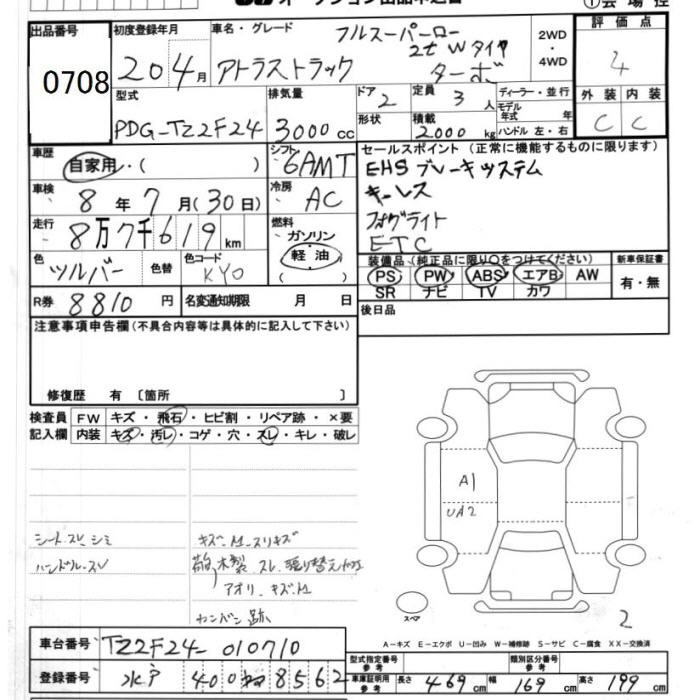 オークション出品申込書
①会場控
出品番号 0708
初度登録年月 20 4月
車名・グレード フルスーパーロー 2t Wタイヤ
アトラストラック ターボ
2WD・4WD
評価点 4
外装 C 内装 C
型式 PDG-TZ2F24
排気量 3000cc
ドア 2
形状
定員 3人
積載 2000kg
ディーラー・並行
モデル年式 年式
ハンドル 左・右
車歴 自家用・( )
シフト 6AMT
セールスポイント (正常に機能するものに限る)
EHS ブレーキシステム
キーレス
フォグライト
ETC
車検 8年 7月(30日)
冷房 AC
走行 8万7千619km
燃料 ガソリン
軽油
( )
色 シルバー 色替
色コード KY0
装備品 (純正品に限り○をつけてください)
PS PW ABS エアB AW
SR ナビ TV カワ
新車保証書
有・無
R券 8810円
名変通知期限 月 日
後日品
注意事項申告欄 (不具合内容等は具体的に記入して下さい)
修復歴 有 〔箇所 〕
検査員記入欄
FW キズ・飛石・ヒビ割・リペア跡・×要
内装 キズ・汚レ・コゲ・穴・スレ・キレ・破レ
シート.スレ シミ
ハンドル.スレ
アオリ.キズ.M
カンバン跡
A1
UA2
スペア
2
A－キズ E－エクボ U－凹み W－補修跡 S－サビ C－腐食 XX－交換済
車台番号 TZ2F24-010710
登録番号 水戸 400 8562
型式指定番号 参考
類別区分番号 参考
車庫証明用 参考
長さ 469cm 幅 169cm 高さ 199cm